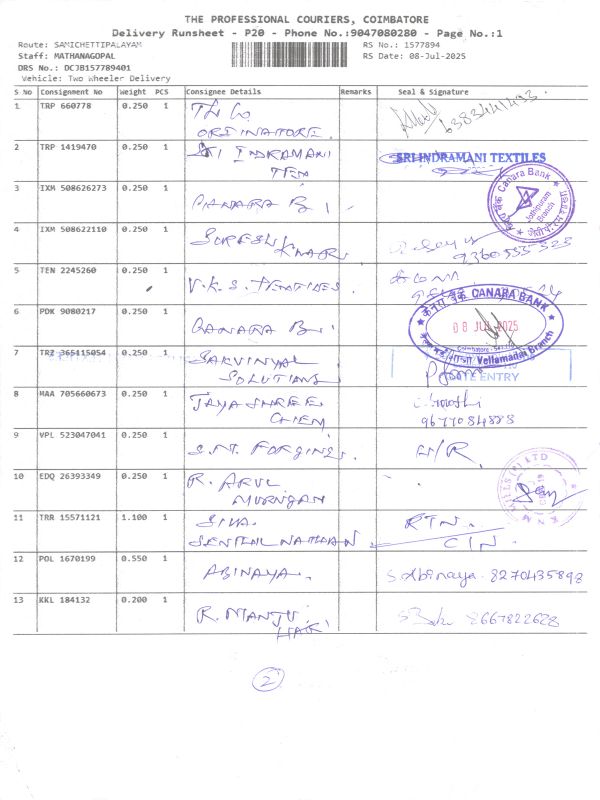 THE PROFESSIONAL COURIERS, COIMBATORE
Delivery Runsheet - P20 - Phone No.:9047080280 - Page No.:1
Route: SAMICHETTIPALAYAM
RS No.: 1577894
Staff: MATHANAGOPAL
RS Date: 08-Jul-2025
DRS No.: DCJB157789401
Vehicle: Two Wheeler Delivery
S No Consignment No Weight PCS Consignee Details Remarks Seal & Signature
1 TRP 660778 0.250 1
2 TRP 1419470 0.250 1 SRI INDRAMANI TEX SRI INDRAMANI TEXTILES
3 IXM 508626273 0.250 1 CANARA B Canara Bank
Jothipuram
Branch
4 IXM 508622110 0.250 1 SURESH KUMAR
5 TEN 2245260 0.250 1 V.K.S. TEXTILES
6 PDK 9080217 0.250 1 CANARA B केनरा बैंक CANARA BANK
08 JUL 2025
Vellamadai Branch
7 TRZ 365115054 0.250 1 SARVINYAL SOLUTIONS
ENTRY
8 MAA 705660673 0.250 1 JAYASHREE CHEM
9677084883
9 VPL 523047041 0.250 1 S.N.T. FORGINGS
10 EDQ 26393349 0.250 1 R. ARUL MURUGAN
11 TRR 15571121 1.100 1 SIVA SENTHILNATHAN RTN.
CIN
12 POL 1670199 0.550 1 ABINAYA. Abinaya 8270435898
13 KKL 184132 0.200 1 R. MANJU 8667822628
2